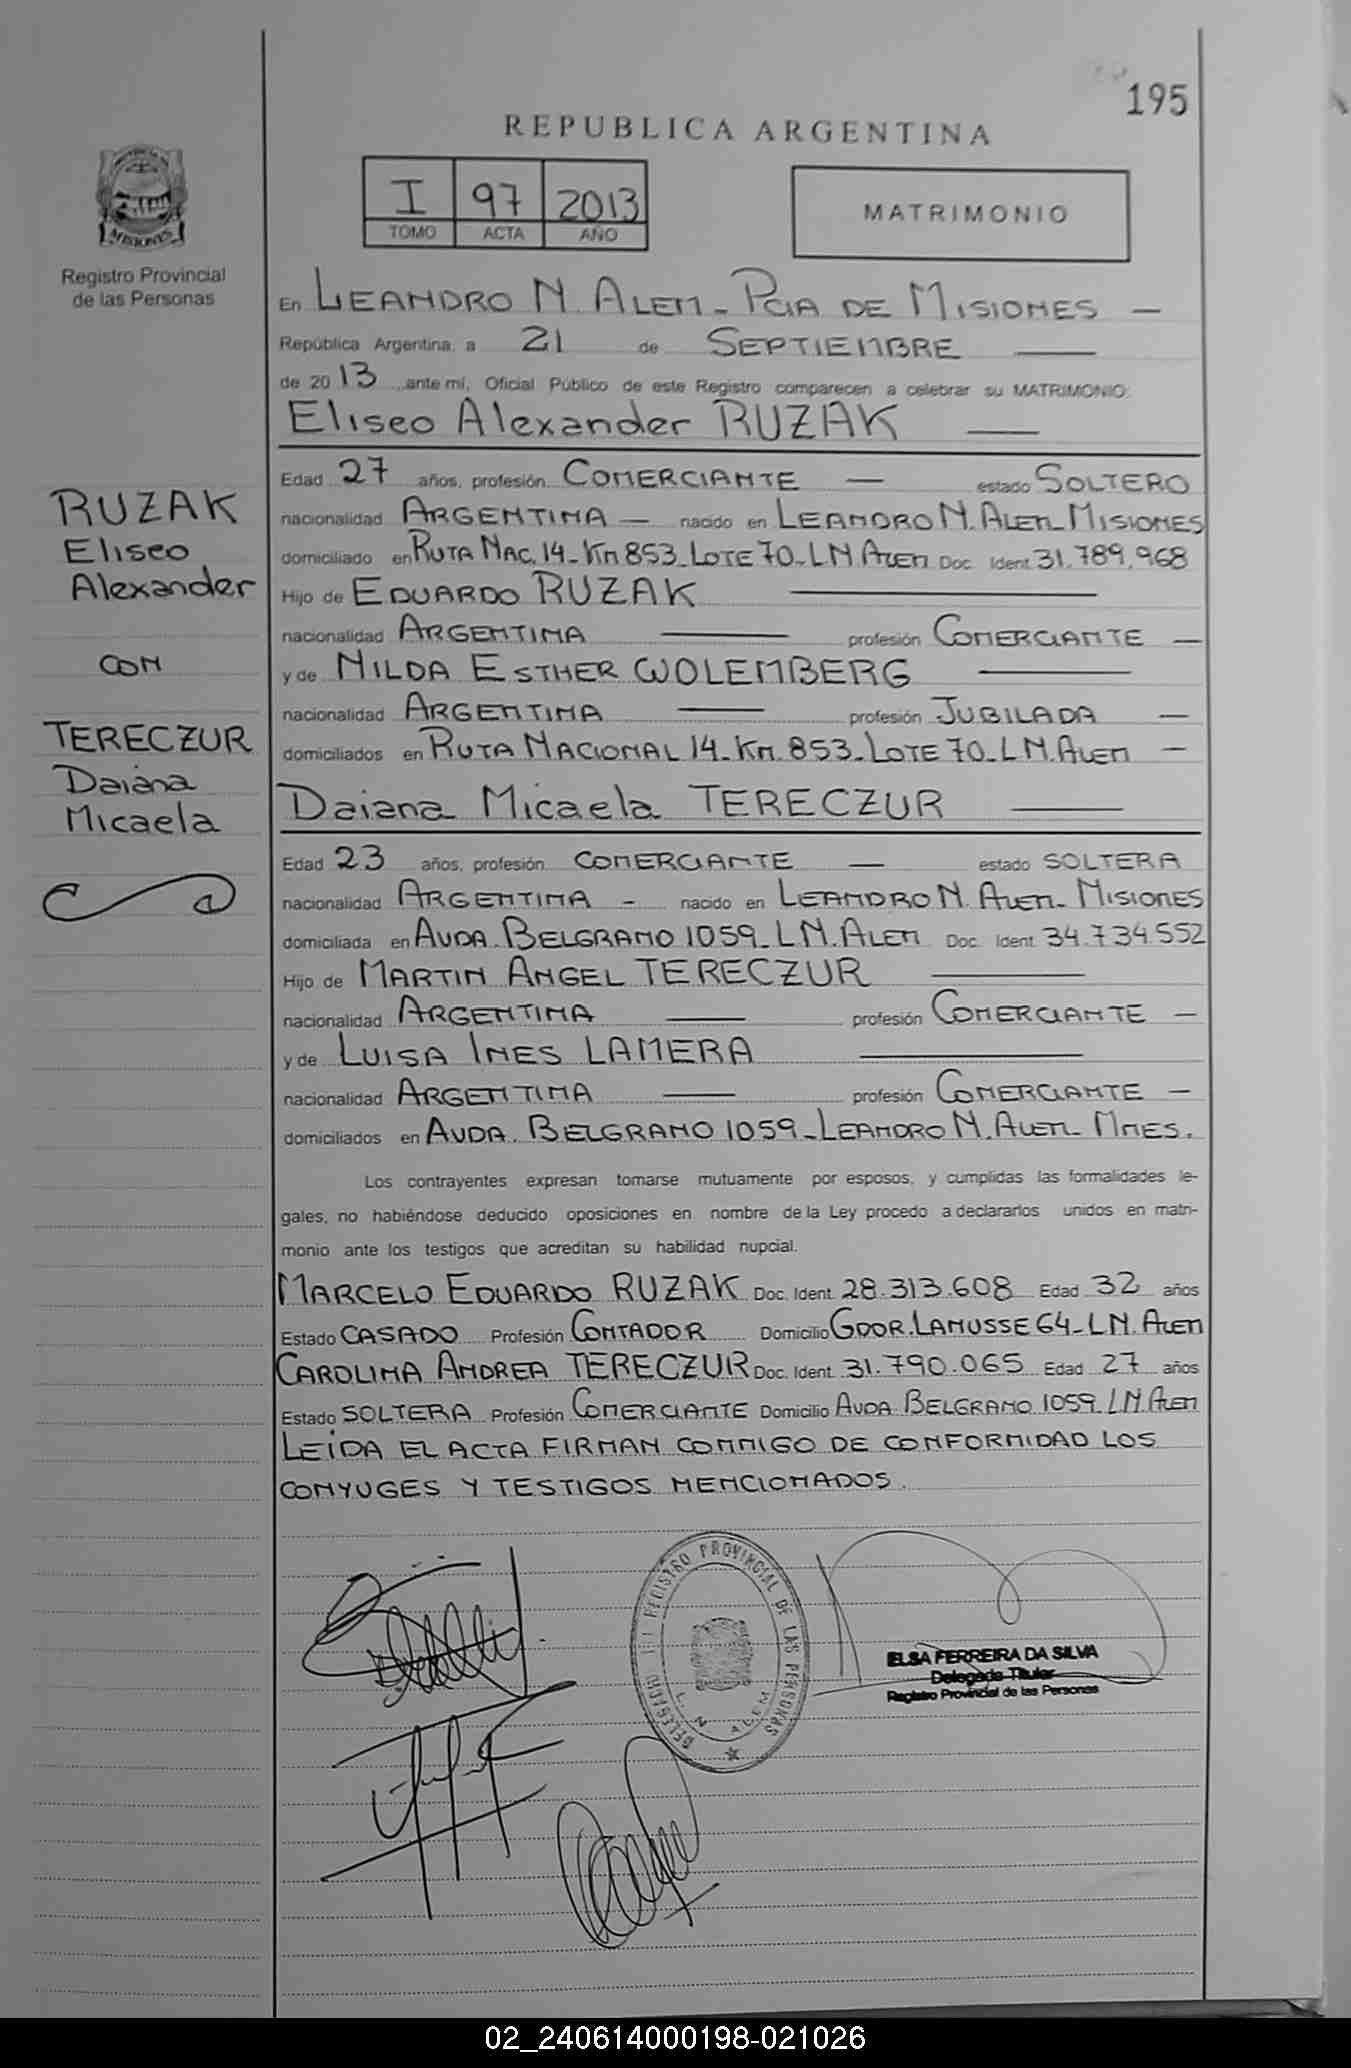 195
REPUBLICA ARGENTINA
I 97 2013
TOMO ACTA AÑO
MATRIMONIO
MISIONES
Registro Provincial
de las Personas
En LEANDRO N. ALEM - PCIA DE MISIONES —
República Argentina, a 21 de SEPTIEMBRE —
de 2013, ante mí, Oficial Público de este Registro comparecen a celebrar su MATRIMONIO:
Eliseo Alexander RUZAK —
RUZAK
Eliseo
Alexander
CON
TERECZUR
Daiana
Micaela
Edad 27 años, profesión COMERCIANTE — estado SOLTERO
nacionalidad ARGENTINA — nacido en LEANDRO N. ALEM - MISIONES
domiciliado en RUTA NAC. 14 - KM 853 - LOTE 70 - L N ALEM Doc. Ident. 31.789.968
Hijo de EDUARDO RUZAK —
nacionalidad ARGENTINA — profesión COMERCIANTE —
y de NILDA ESTHER WOLEMBERG —
nacionalidad ARGENTINA — profesión JUBILADA —
domiciliados en RUTA NACIONAL 14 - KM. 853 - LOTE 70 - L N. ALEM —
Daiana Micaela TERECZUR —
Edad 23 años, profesión COMERCIANTE — estado SOLTERA
nacionalidad ARGENTINA - nacido en LEANDRO N. ALEM - MISIONES
domiciliada en AVDA. BELGRANO 1059 - L N. ALEM Doc. Ident. 34.734.552
Hijo de MARTIN ANGEL TERECZUR —
nacionalidad ARGENTINA — profesión COMERCIANTE —
y de LUISA INES LANERA —
nacionalidad ARGENTINA — profesión COMERCIANTE —
domiciliados en AVDA. BELGRANO 1059 - LEANDRO N. ALEM - MNES.
Los contrayentes expresan tomarse mutuamente por esposos, y cumplidas las formalidades le-
gales, no habiéndose deducido oposiciones en nombre de la Ley procedo a declararlos unidos en matri-
monio ante los testigos que acreditan su habilidad nupcial.
MARCELO EDUARDO RUZAK Doc. Ident. 28.313.608 Edad 32 años
Estado CASADO Profesión CONTADOR Domicilio GDOR. LANUSSE 64 - L N. ALEM
CAROLINA ANDREA TERECZUR Doc. Ident. 31.790.065 Edad 27 años
Estado SOLTERA Profesión COMERCIANTE Domicilio AVDA BELGRANO 1059 - L N ALEM
LEIDA EL ACTA FIRMAN CONMIGO DE CONFORMIDAD LOS
CONYUGES Y TESTIGOS MENCIONADOS.
REGISTRO PROVINCIAL DE LAS PERSONAS
L. N. ALEM
ELSA FERREIRA DA SILVA
Delegada Titular
Registro Provincial de las Personas
02_240614000198-021026